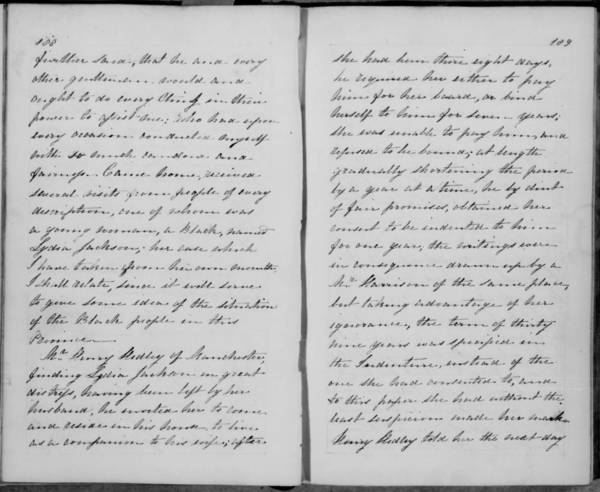 108
further said, that he and every
other gentleman would and
ought to do every thing in their
power to assist me; who had upon
every occasion conducted myself
with so much candour and
fairness. Came home, received
several visits from people of every
description, one of whom was
a young woman, a Black, named
Lydia Jackson; her case which
I have taken from her own mouth,
I shall relate, since it will serve
to give some idea of the situation
of the Black people in this
Province.
Mr. Henry Hedley of Manchester,
finding Lydia Jackson in great
distress, having been left by her
husband, he invited her to come
and reside in his house, to live
as a companion to his wife; after
109
she had been there eight days,
he required her either to pay
him for her board, or bind
herself to him for seven years;
she was unable to pay him, and
refused to be bound; at length
gradually shortening the period
by a year at a time, he by dint
of fair promises, obtained her
consent to be indented to him
for one year, the writings were
in consequence drawn up by a
Mr. Harrison of the same place,
but taking advantage of her
ignorance, the term of thirty
nine years was specified in
the Indenture, instead of the
one she had consented to, and
to this paper she had without the
least suspicion made her mark.
Henry Hedley told her the next day